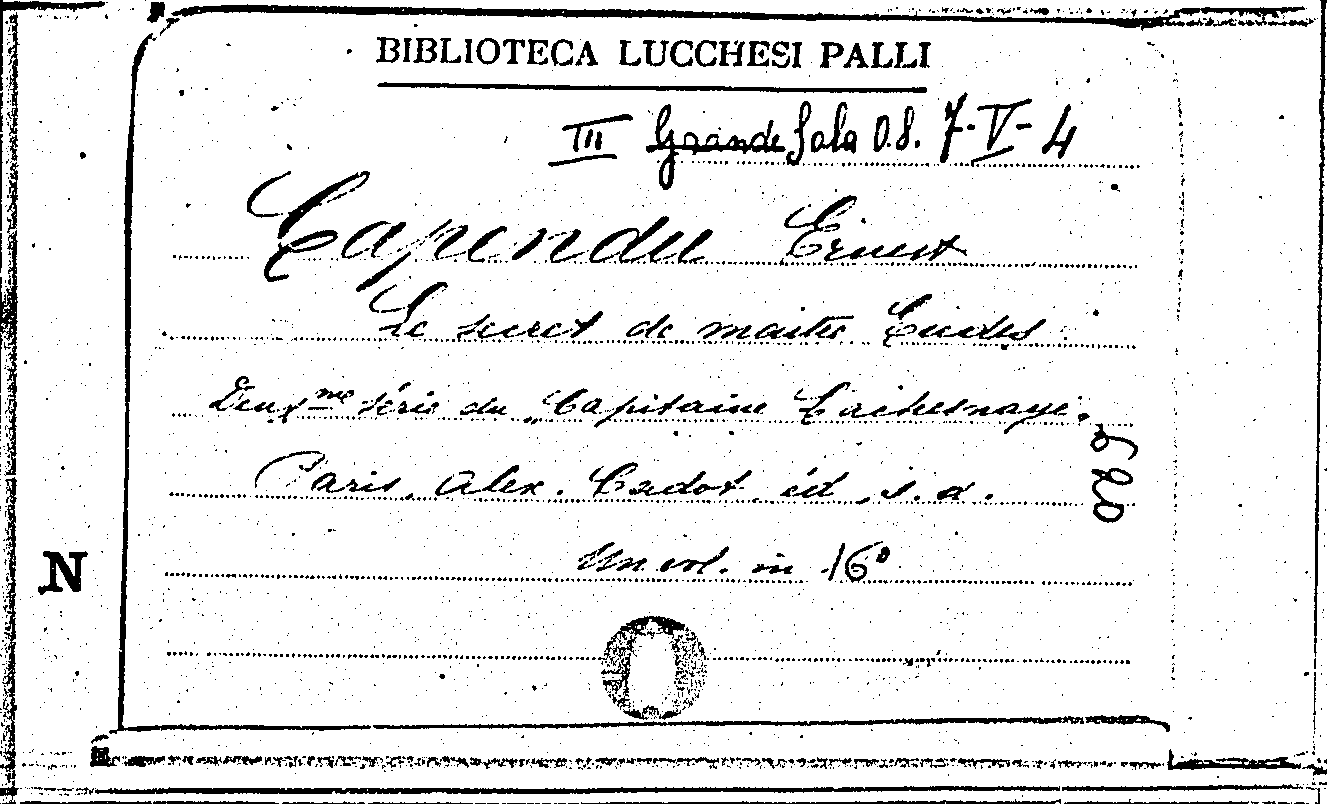 BIBLIOTECA LUCCHESI PALLI
III Grande Sala O.8. 7-V-4
Capendu Ernest
Le secret de maitre Eudes
Deuxme série du "Capitaine Lachesnaye.
Paris. Alex. Cadot. éd. s. d.
Un vol. in 16°
N